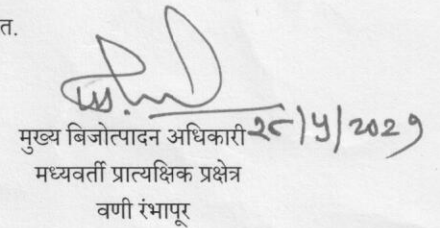 त.
मुख्य बिजोत्पादन अधिकारी २८/५/२०२१
मध्यवर्ती प्रात्यक्षिक प्रक्षेत्र
वणी रंभापूर